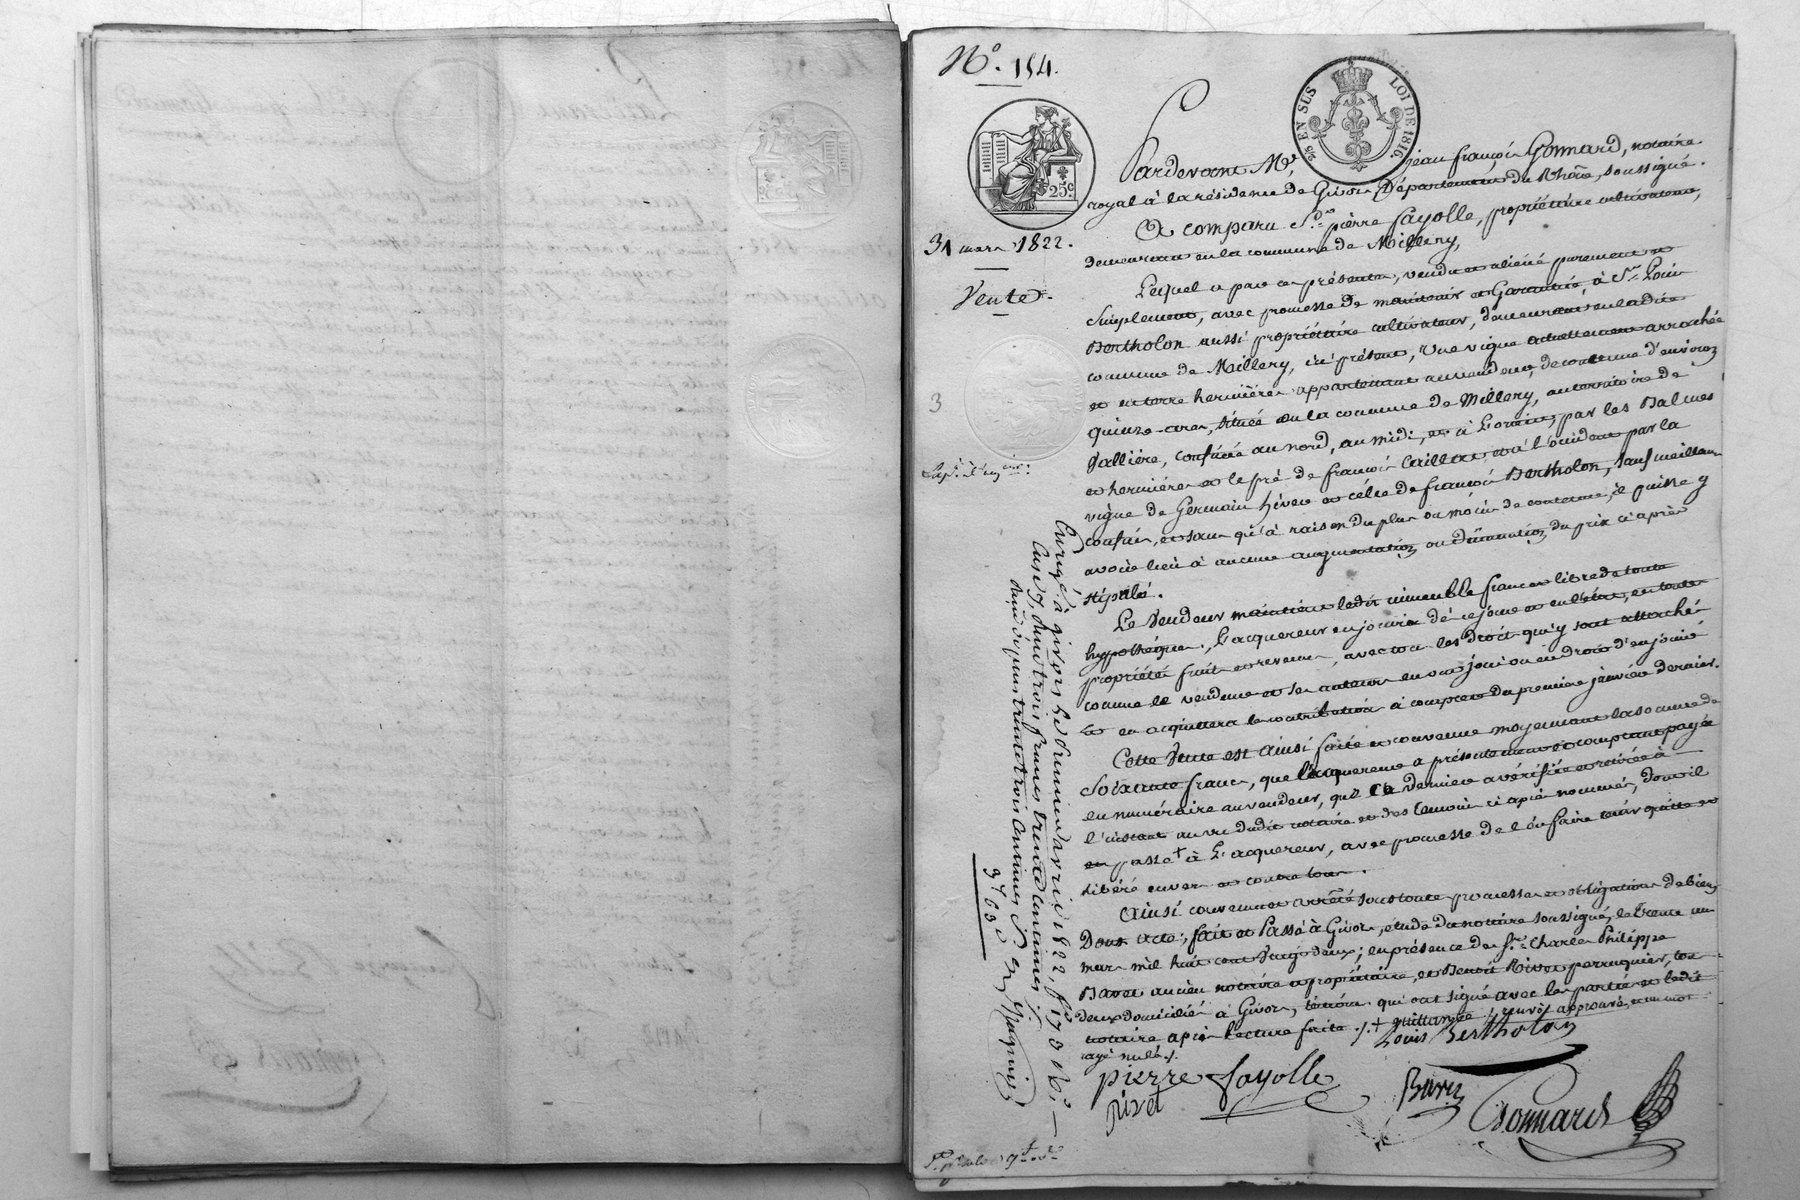 N.° 154.
2/5 EN SUS LOI DE 1816.
25c
31 mars 1822.
Vente.
3
Pardevant M.e jean françois Gonnard, notaire
royal à la résidence de Givors Département du Rhône, soussigné.
A comparu S.r pierre fayolle, propriétaire cultivateur,
demeurant en la commune de Millery,
Lequel a par ces présentes, vendu et aliéné purement et
Simplement, avec promesse de maintenir et Garantie, à S.r Louis
Bertholon aussi propriétaire cultivateur, demeurant en la dite
commune de Millery, ici présent, Une vigne actuellement arrachée
et en terre hermières appartenant au vendeur, de contenue d'environ
quinze ares, située en la commune de Millery, au territoire de
confinée au nord, au midi, et à L'orient, par les Balmes
et hermières et le pré de françois Caillet et à l'occident par la
vigne de Germain et celle de françois Bertholon, sauf meilleurs
confins, et sans qu'à raison du plus ou moins de contenue, il puisse y
avoir lieu à aucune augmentation ou diminution du prix ci après
stipulé.
Le Vendeur maintient ledit immeuble franc et libre de toute
hypothèque, L'acquereur en jouira dès ce jour et en l'état, en toute
propriété fruits et revenus, avec tous les droits qui y sont attachés
comme le vendeur et ses auteurs en ont joui ou eu droit d'en jouir
et en acquittera les contributions à compter du premier janvier dernier.
Cette Vente est ainsi faite et convenue moyennant la somme de
Soixante francs, que l'acquereur a présentement et comptant payée
en numéraire au vendeur, que ce dernier a vérifiée et retirée à
l'instant au vu dudit notaire et des témoins ci après nommés, dont il
en passe + à L'acquereur, avec promesse de l'en faire tenir quitte et
libéré envers et contre tous.
Ainsi convenu et arrêté sous toutes promesses et obligations de biens
Dont Acte, fait et Passé à Givors, étude du notaire soussigné, le trente un
mars mil huit cent vingt deux; en présence de S.rs Charles Philippe
Bavet ancien notaire et propriétaire, et Benoit Rivet perruquier, tous
deux domiciliés à Givors, témoins qui ont signé avec les parties et ledit
notaire après lecture faite ./. + quittance / renvoi approuvé, et un mot
rayé nul ./.
Louis Bertholon
pierre fayolle
Bavet
rivet
Gonnard
Enregé à givors le premier avril 1822, f.° 173 R.°
Case 9, reçu trois francs trente centimes
dixième trente trois centimes
3f 63c